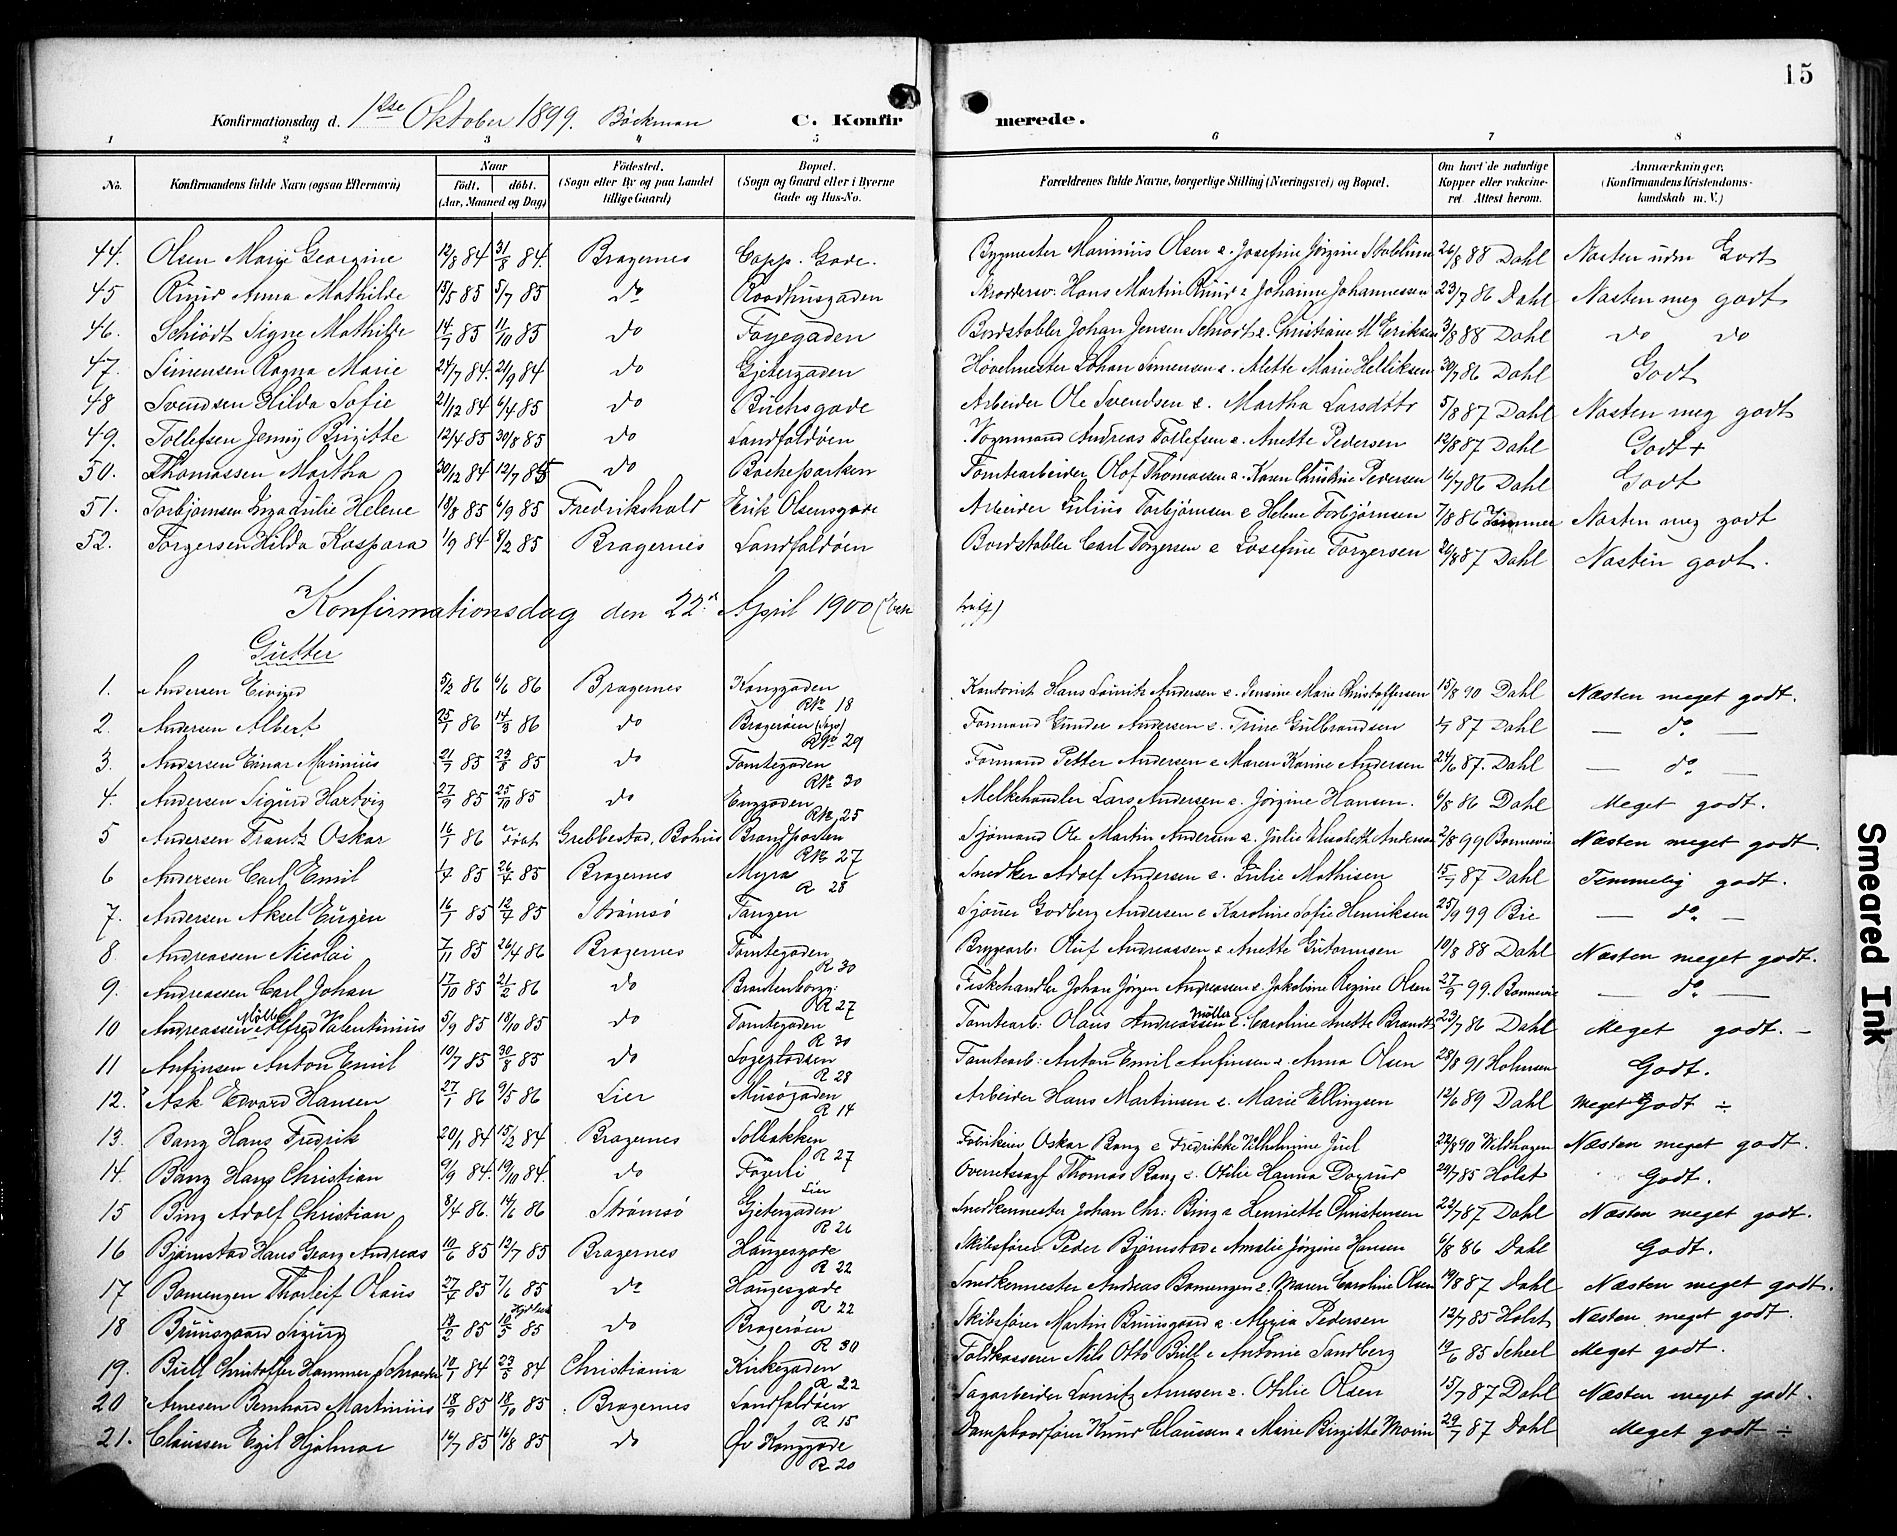 15
Konfirmationsdag d. 1ste Oktober 1899. Böckman C. Konfirmerede.
1 2 3 4 5 6 7 8
No. Konfirmandens fulde Navn (ogsaa Efternavn) Naar födt. döbt. (Aar, Maaned og Dag) Födested. (Sogn eller By og paa Landet tillige Gaard) Bopæl. (Sogn og Gaard eller i Byerne Gade og Hus-No. Forældrenes fulde Navne, borgerlige Stilling (Næringsvei) og Bopæl. Om havt de naturlige Kopper eller vakcineret. Attest herom. Anmærkninger. (Konfirmandens Kristendomskundskab m. V.)
44. Olsen Marie Georgine 12/8 84 31/8 84. Bragernes Copp. Gade. Bygmester Marinius Olsen & Josefine Jørgine 26/8 88 Dahl Næsten uden Godt
45 Ruud Anna Mathilde 15/5 85 5/7 85 do Raadhusgaden Skræddersv: Hans Martin Ruud & Johanne Johannessen 23/7 86 Dahl Næsten meg godt
46. Schiödt Signe Mathilde 14/7 85 11/10 85 do Fogegaden Bordstabler Johan Jensen Schiödt & Christiane M Eriksen 3/8 88 Dahl do do
47. Simensen Ragna Marie 24/7 84. 21/9 84 do Gjetergaden Høvelmester Johan Simensen & Alette Marie Helliksen 30/7 86 Dahl Godt
48 Svendsen Hilda Sofie 21/12 84 6/4 85 do Buchsgade Arbeider Ole Svendsen & Martha Larsdtr 5/8 87 Dahl Næsten meg godt
49. Tollefsen Jenny Birgitte 12/4 85 30/8 85 do Landfaldöen Vognmand Andreas Tollefsen & Anette Pedersen 12/8 87 Dahl Godt +
50. Thomassen Martha 30/12 84 12/7 85 do Bacheparken Tomtearbeider Olof Thomassen & Karen Christine Pedersen 16/7 86 Dahl Godt
51. Torbjørnsen Inga Julie Helene 18/8 85 6/9 85 Fredrikshald Erik Olsensgade Arbeider Julius Torbjørnsen & Helene Torbjørnsen 7/8 86 Næsten meg godt
52. Torgersen Hilda Kaspara 1/9 84 8/2 85 Bragernes Landfaldöen Bordstabler Carl Torgersen & Josefine Torgersen 20/8 87 Dahl Næsten godt.
Konfirmationsdag den 22. April 1900
Gutter
1. Andersen Eivind 5/2 86 6/6 86 Bragernes Konggaden R No 18 Kontorist Hans Lauritz Andersen & Jensine Marie Christoffersen 15/8 90 Dahl Næsten meget godt.
2. Andersen Albert 25/1 86 14/3 86 do Bragerøen R No 29 Formand Gunder Andersen & Trine Gulbrandsen 87 Dahl — do —
3. Andersen Einar Marinius 21/7 85 23/8 85 do Tomtegaden R No 30 Formand Petter Andersen & Maren Karine Andersen 24/6 87. Dahl — do —
4. Andersen Sigurd Hartvig 27/9 85 25/10 85 do Enggaden R No 25 Melkehandler Lars Andersen & Jørgine Hansen. 6/8 86 Dahl Meget godt.
5 Andersen Frantz Oskar 16/1 86 Grebbestad, Bohus Brandposten R No 27 Sjømand Ole Martin Andersen & Julie Elisabeth Andersen 2/8 99 Bonnevie Næsten meget godt.
6 Andersen Carl Emil 85 26/7 85 Bragernes Myra R 28 Snedker Adolf Andersen & Julie Mathisen 15/7 87 Dahl Temmelig godt.
7. Andersen Aksel Eugèn 16/1 85 12/7 85 Strømsø Tangen Sjøuer Godberg Andersen & Karoline Sofie Henriksen 25/9 99 Bie — do —
8. Andreassen Nicolai 7/11 85 26/4 86 Bragernes Tomtegaden R 30 Bryggearb: Oluf Andreassen & Anette Gutormsen 10/8 88 Dahl Næsten meget godt.
9. Andreassen Carl Johan 17/10 85 21/2 86 do R 27 Fiskehandler Johan Jørgen Andreassen & Jakobine Regine Olsen 27/9 99. Bonnevie — do —
10 Andreassen Møller Alfred Valentinius 5/9 85 18/10 85 do Tomtegaden R 30 Tomtearb: Olaus Andreassen Møller & Caroline Anette Brandt 23/7 86 Dahl Meget godt. —
11 Anfinsen Anton Emil 10/7 85 30/8 85 do R 28 Tomtearb: Anton Emil Anfinsen & Anna Olsen 28/8 91 Holmsen Godt.
12. Ask Edvard Hansen 27/1 86 9/5 86 Lier R 14 Arbeider Hans Martinsen & Marie Ellingsen 12/6 89 Dahl Meget Godt ÷
13. Bang Hans Fredrik 20/1 84 15/2 84 Bragernes Solbakken R 27 Fabrikeier Oskar Bang & Fredrikke Vilhelmine Juel 22/8 90 Wildhagen Næsten meget godt.
14. Bang Hans Christian 9/9 84. 19/10 84. do Fagerli Lier Overretssagf. Thomas Bang & Otilie Hanna Dogrud 29/7 85 Holst Godt.
15 Bing Adolf Christian 8/4 86. 14/6 86 Strømsø Gjetergaden R 26 Snedkermester Johan Chr: Bing & Henriette Christensen 23/7 87 Dahl Næsten meget godt.
16 Bjørnstad Hans Georg Andreas 10/6 85 12/7 85 Bragernes Haugesgade R 22 Skibsfører Peder Bjørnstad & Amalie Jørgine Hansen 6/8 86 Dahl Godt.
17 Bomengen Thorleif Olaus 27/4 85 7/6 85 do Haugesgade R 22 Snedkermester Andreas Bomengen & Maren Caroline Olsen 19/8 87 Dahl Næsten meget godt.
18 Bruusgaard Sigurd 85 10/5 85 do Bragerøen R 30 Skibsfører Martin Bruusgaard & Alyria Pedersen 12/7 85 Holst Næsten meget godt.
19. Bull Christoffer Hammer Schroeder 10/1 84 23/5 84 Christiania Kirkegaden R 22 Toldkasserer Nils Otto Bull & Antonie Sandberg 19/6 85 Scheel Meget godt.
20 Arnesen Bernhard Martinius 18/9 85 18/10 85 Bragernes Landfaldöen R 15 Sagarbeider Lauritz Arnesen & Otilie Olsen 15/7 87 Dahl Næsten meget godt.
21. Claussen Egil Hjalmar 16/7 85 16/8 85 do Øv Konggade R 20 Dampbaadfører Knud Claussen & Marie Birgitte Morin 29/7 87 Dahl Meget godt ÷
Smeared Ink